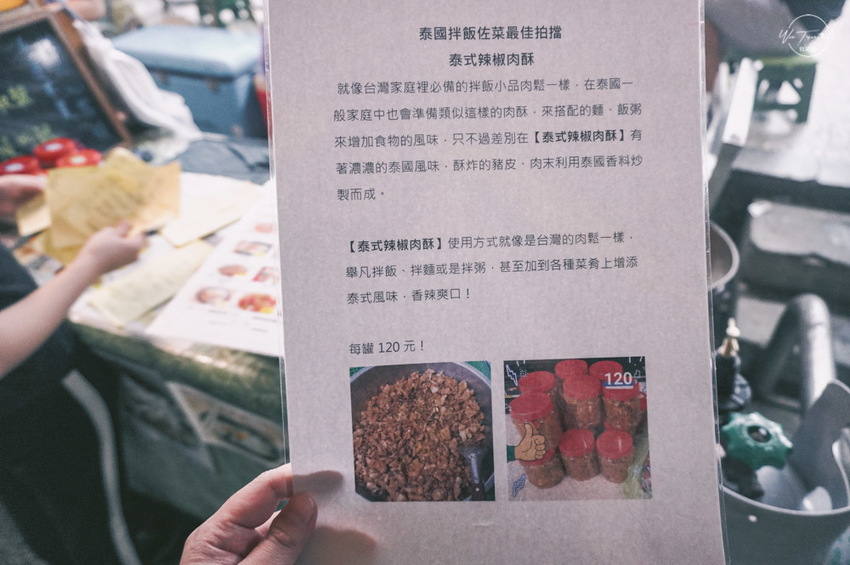 泰國拌飯佐菜最佳拍擋
泰式辣椒肉酥
就像台灣家庭裡必備的拌飯小品肉鬆一樣，在泰國一
般家庭中也會準備類似這樣的肉酥，來搭配的麵，飯粥
來增加食物的風味，只不過差別在【泰式辣椒肉酥】有
著濃濃的泰國風味，酥炸的豬皮、肉末利用泰國香料炒
製而成。
【泰式辣椒肉酥】使用方式就像是台灣的肉鬆一樣，
舉凡拌飯、拌麵或是拌粥，甚至加到各種菜肴上增添
泰式風味，香辣爽口！
每罐 120 元！
120